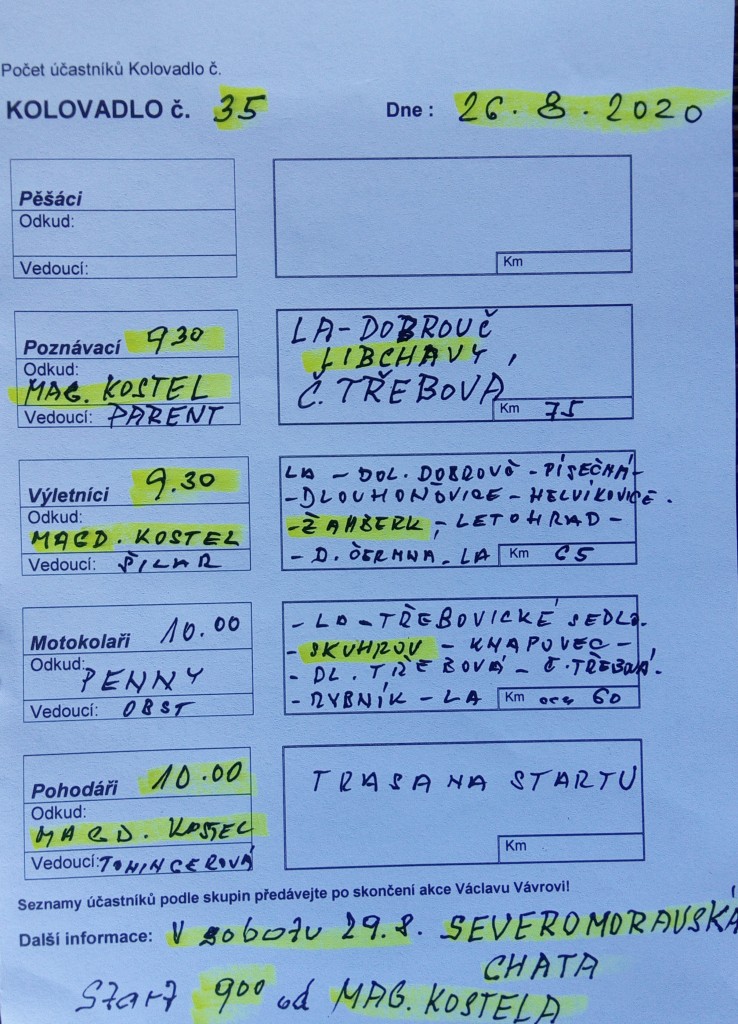 Počet účastníků Kolovadlo č.
KOLOVADLO č. 35 Dne : 26. 8. 2020
Pěšáci
Odkud:
Vedoucí:
Km
Poznávací 9 30
Odkud:
MAG. KOSTEL
Vedoucí: PARENT
LA-DOBROUČ
LIBCHAVY,
Č. TŘEBOVA
Km 75
Výletníci 9.30
Odkud:
MAGD. KOSTEL
Vedoucí: ŠILAR
LA - DOL. DOBROUČ - PÍSEČNÁ -
- DLOUHOŇOVICE - HELVÍKOVICE.
- ŽAMBERK, - LETOHRAD -
- D. ČERMNA - LA Km 65
Motokolaři 10.00
Odkud:
PENNY
Vedoucí: OBST
- LA - TŘEBOVICKÉ SEDLO.
- SKUHROV - KNAPOVEC -
- DL. TŘEBOVÁ - Č. TŘEBOVÁ.
- RYBNÍK - LA Km cca 60
Pohodáři 10.00
Odkud:
MAGD. KOSTEL
Vedoucí: TOMINCEROVÁ
TRASA NA STARTU
Km
Seznamy účastníků podle skupin předávejte po skončení akce Václavu Vávrovi!
Další informace: V sobotu 29.8. SEVEROMORAVSKÁ
CHATA
Start 9 00 od MAG. KOSTELA